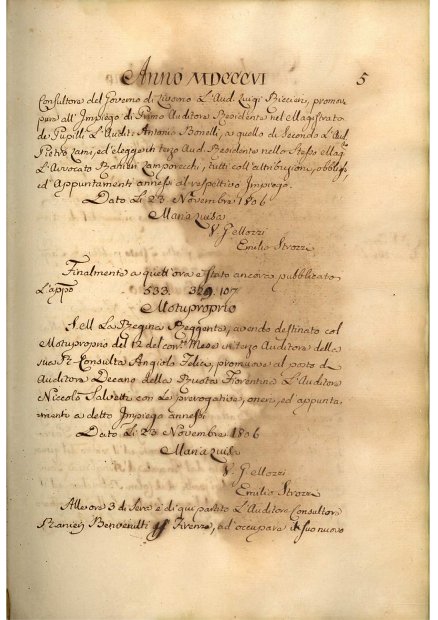 Anno MDCCCVI 5
Consultore del Governo di Livorno L'Aud. Luigi Riccieri, promove
pure all'Impiego di Primo Auditore Residente nel Magistrato
de Pupilli L'Audit. Antonio Bonelli, a quello di Secondo L'Aud.
Pietro Zami, ed elegge in terzo Aud. Residente nello Stesso Mag.
L'Avvocato Ranieri Lamporecchi, tutti coll'attribuzioni, obblighi,
ed Appuntamenti annessi al respettivo Impiego.
Dato Li 23 Novembre 1806
Maria Luisa
V. G. Mozzi
Emilio Strozzi
Finalmente a quest'ora è stato ancora pubblicato
L'app.o 533 329. 107.
Motuproprio
S. M. La Regina Reggente, avendo destinato col
Motuproprio del 12 del corr.te Mese in terzo Auditore della
sua R. Consulta Angiolo Felici, promuove al posto di
Auditore Decano della Ruota Fiorentina L'Auditore
Niccolò Salvetti con Le prerogative, oneri, ed appunta-
menti a detto Impiego annessi
Dato Li 23 Novembre 1806
Maria Luisa
V. G. Mozzi
Emilio Strozzi
Alle ore 3 di sera è di qui partito L'Auditore Consultore
Ranieri Benvenuti Firenze, ad occupare il suo nuovo